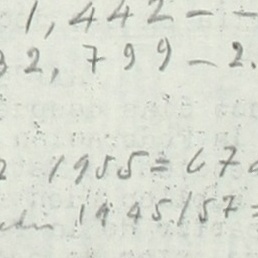 1,442 - -
32,799 - 2.
2 1955 = 67
1945/57 =